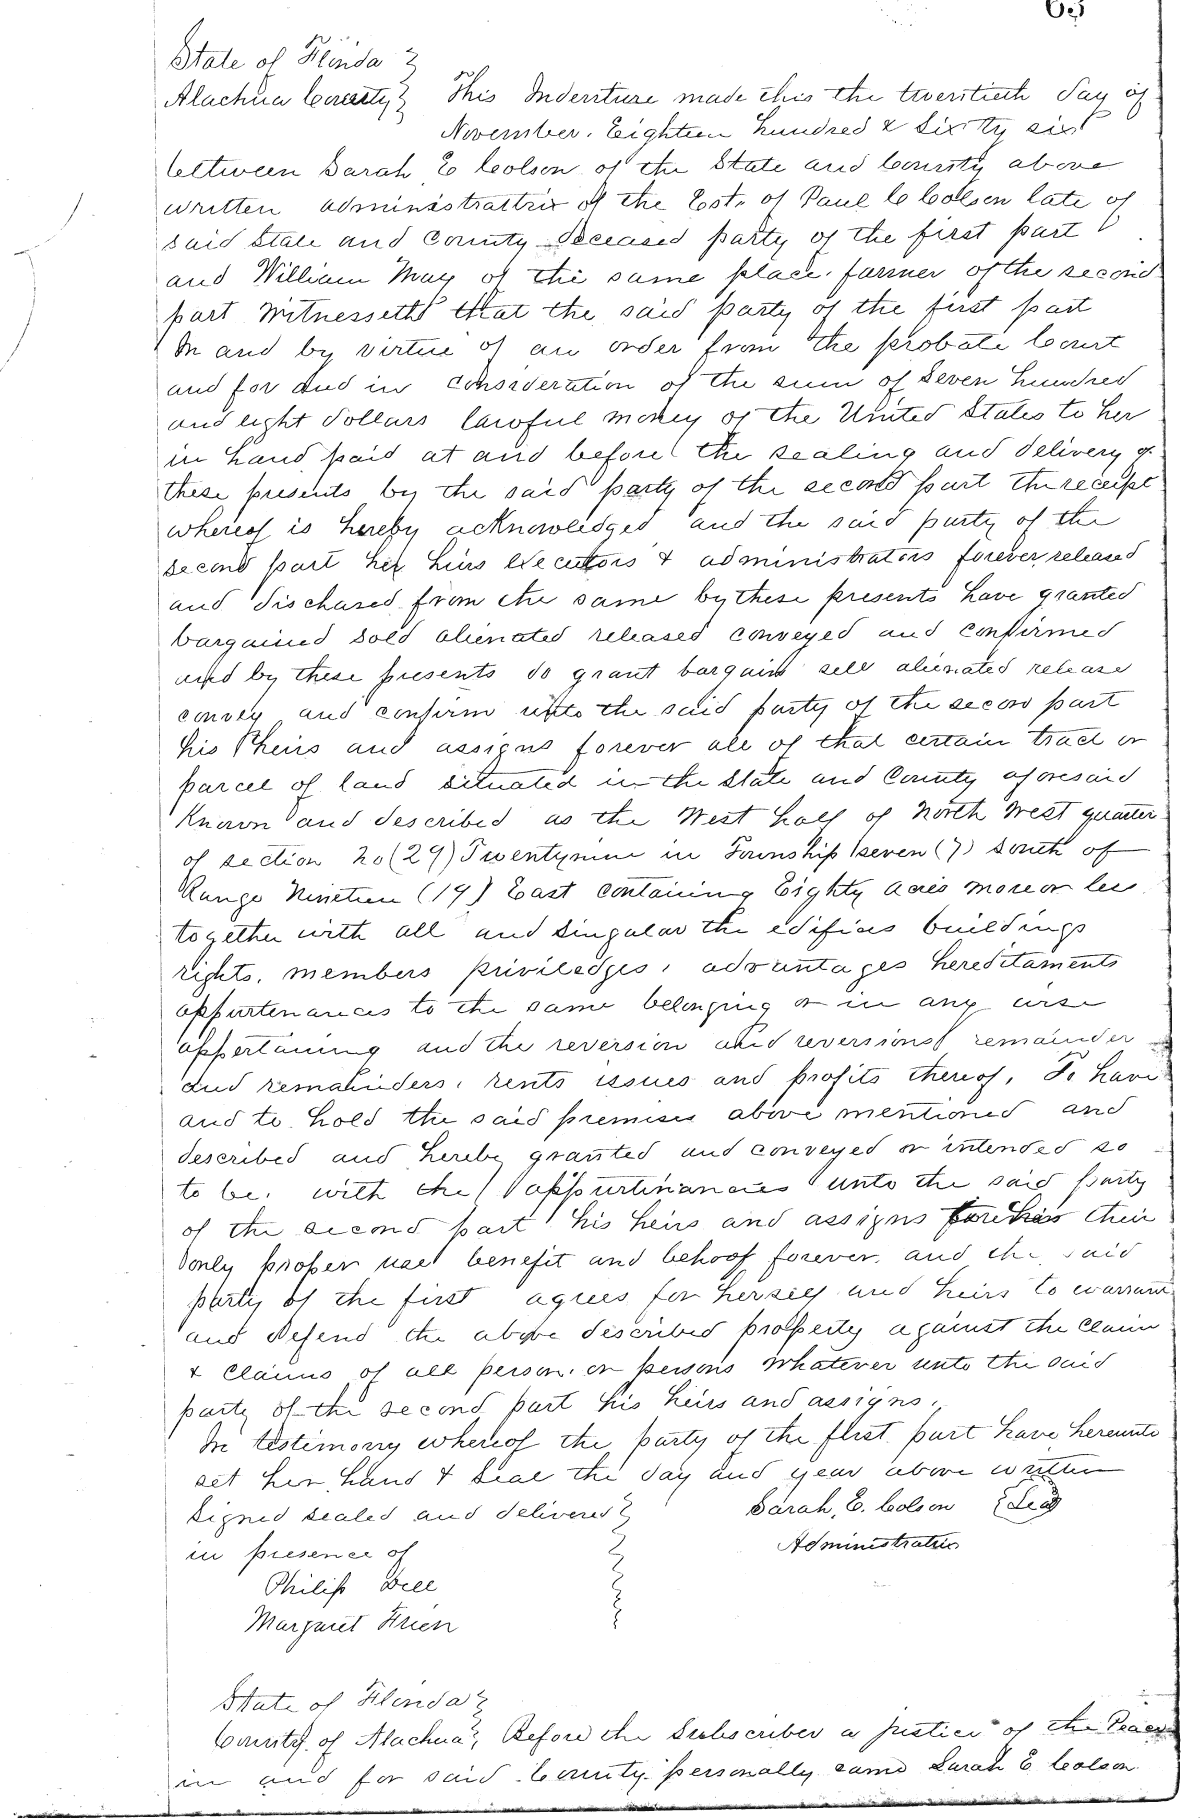 65
State of Florida }
Alachua County } This Indenture made this the twentieth day of
November. Eighteen hundred & Sixty six
between Sarah E Colson of the State and County above
written administrattrix of the Est. of Paul C Colson late of
said State and County deceased party of the first part
and William May of the same place. farmer of the second
part Witnesseth that the said party of the first part
In and by virtue of an order from the probate Court
and for and in consideration of the sum of Seven hundred
and eight dollars lawful money of the United States to her
in hand paid at and before the sealing and delivery of
these presents by the said party of the second part the receipt
whereof is hereby acknowledged and the said party of the
second part her hirs executors & administrators forever released
and dischased from the same by these presents have granted
bargained sold alienated released conveyed and confirmed
and by these presents do grant bargain sell alienated release
convey and confirm unto the said party of the second part
his heirs and assigns forever all of that certain tract or
parcel of land situated in the State and County aforesaid
Known and described as the West half of North West quarter
of section No (29) Twentynine in Township seven (7) South of
Range Nineteen (19) East containing Eighty acres more or less
together with all and singular the edifices buildings
rights. members priviledges, advantages hereditaments
appurtenances to the same belonging or in any wise
appertaining and the reversion and reversions remainder
and remainders, rents issues and profits thereof, To have
and to hold the said premises above mentioned and
described and hereby granted and conveyed or intended so
to be. with the appurtinances unto the said party
of the second part his heirs and assigns their
only proper use benefit and behoof forever. and the said
party of the first agrees for herself and heirs to warrant
and defend the above described property against the Claim
& Claims of all person. or persons whatever unto the said
party of the second part his heirs and assigns.
In testimony whereof the party of the first part have hereunto
set her hand & Seal the day and year above written
Signed sealed and delivered } Sarah, E. Colson {Seal}
in presence of Administratrix
Philip Dell
Margaret
State of Florida }
County of Alachua } Before the Subscriber a Justice of the Peace
in and for said County personally came Sarah E Colson